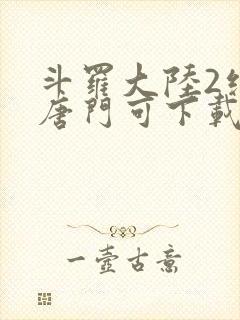 斗羅大陸2
唐門可下載
一壺古意